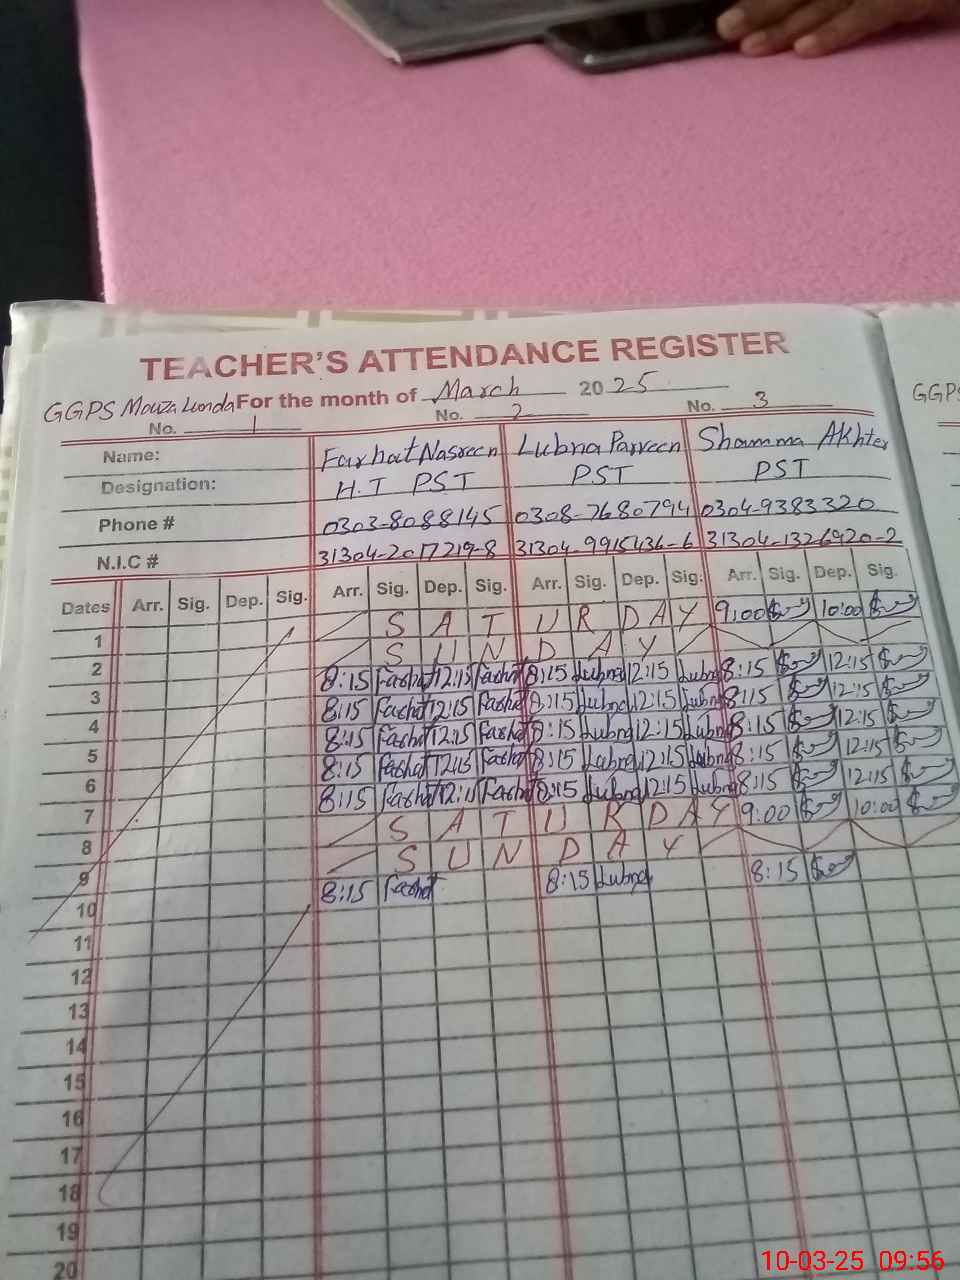 TEACHER'S ATTENDANCE REGISTER
GGPS Mouza Lunda For the month of March 2025
GGPS
No. 1 No. 2 No. 3
Name: Farhat Nasreen Lubna Parveen Shamma Akhter
Designation: H.T PST PST PST
Phone # 0303-8088145 0308-7680794 0304-9383320
N.I.C # 31304-2017219-8 31304-9915436-6 31304-1326920-2
Dates Arr. Sig. Dep. Sig. Arr. Sig. Dep. Sig. Arr. Sig. Dep. Sig. Arr. Sig. Dep. Sig.
1 SATURDAY 9:00 10:00
2 SUNDAY
3 8:15 Farhat 12:15 Farhat 8:15 Lubna 12:15 Lubna 8:15 12:15
4 8:15 Farhat 12:15 Farhat 8:15 Lubna 12:15 Lubna 8:15 12:15
5 8:15 Farhat 12:15 Farhat 8:15 Lubna 12:15 Lubna 8:15 12:15
6 8:15 Farhat 12:15 Farhat 8:15 Lubna 12:15 Lubna 8:15 12:15
7 8:15 Farhat 12:15 Farhat 8:15 Lubna 12:15 Lubna 8:15 12:15
8 SATURDAY 9:00 10:00
9 SUNDAY
10 8:15 Farhat 8:15 Lubna 8:15
11
12
13
14
15
16
17
18
19
20
10-03-25 09:56